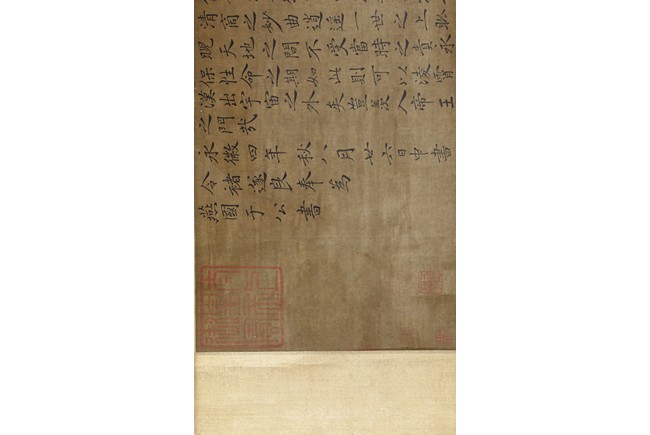 清商之妙曲逍遥一世之上
睨天地之間不受當時之責永
保性命之期如此則可以凌霄
漢出宇宙之外矣豈羨入帝王
之門哉
永徽四年秋八月廿六日中書
令褚遂良奉為
燕國于公書